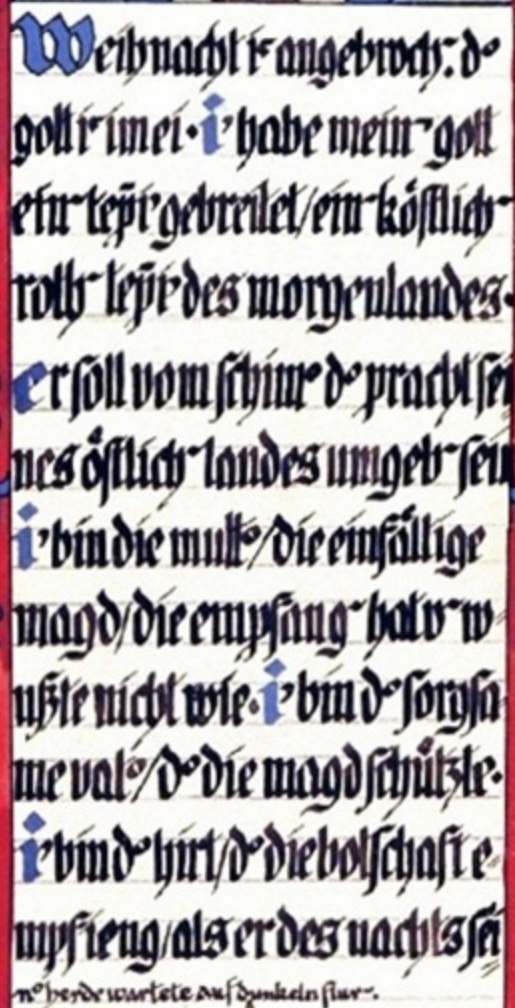 Weihnacht iſt angebroch̄. d'
gott iſt im ei. i' habe mein̄ gott
ein̄ tep̄i' gebreitet/ein̄ köſtlich̄
roth̄ tep̄i' des morgenlandes.
er ſoll vom ſchim̄' d' pracht ſei
nes öſtlich̄ landes umgeb̄ ſein
i' bin die mutt'/die einfältige
magd/die empfanḡ hat v̄ w
ußte nicht wie. i' bin d' ſorgſa
me vat'/d' die magd ſchützte.
i' bin d' hirt/d' die botſchaft e
mpfieng/als er des nachts ſei
n' herde wartete auf dunkeln flur̄.